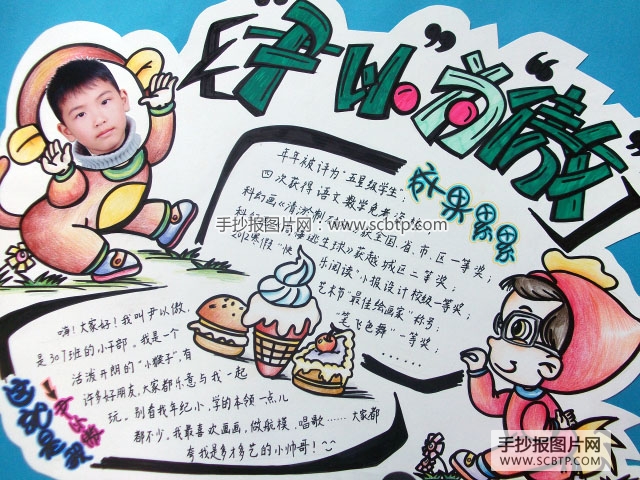 "尹以
成果累累
年年被评为"五星级学生";
四次获得语文数学免考资
科幻画《清淤制
获全国、省、市、区一等奖;
逃生球》获越城区二等奖;
2012寒假"快乐阅读"小报设计校级一等奖;
艺术节"最佳绘画家"称号;
"笔飞色舞"一等奖;
......
嗨!大家好!我叫尹以
是307班的小干部。我是一个
活泼开朗的"小猴子",有
许多好朋友,大家都乐意与我一起
玩。别看我年纪小,学的本领一点儿
都不少。我最喜欢画画、做航模、唱歌……大家都
夸我是多才多艺的小帅哥!
这就是我
手抄报图片网:www.scbtp.com
手抄报图片网
WWW.SCBTP.COM